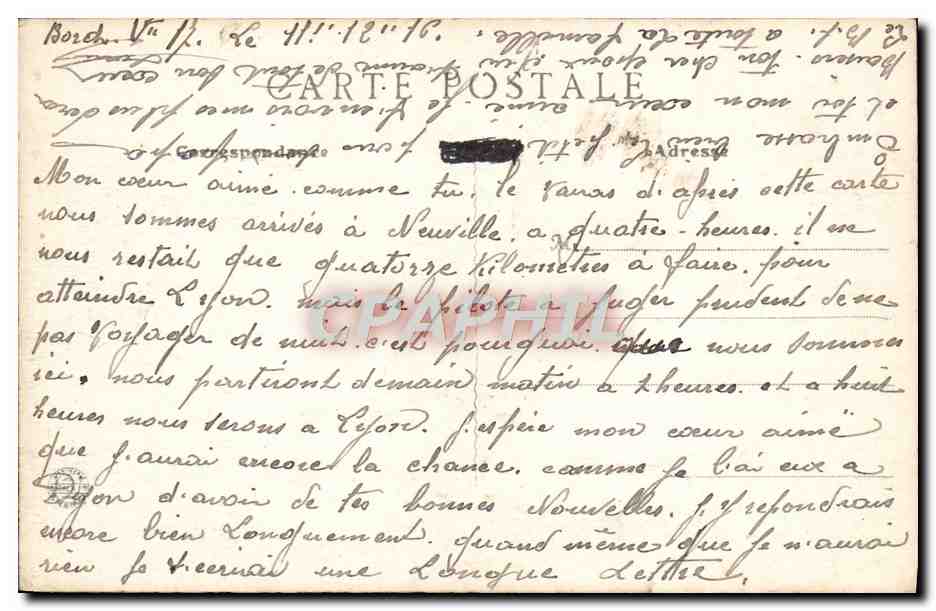 Bord V" 17. Le 11" 12" 19
CARTE POSTALE
Correspondance
Adresse
Mon cœur aimé. comme tu. le Varas d'après cette carte
nous sommes arrivés à Neuville. a quatre-heures. il ne
nous restait que quatorze Kilomètres à faire. pour
atteindre Lyon. mais le pilote a juger prudent de ne
pas Voyager de nuit. c'est pourquoi. nous sommes
ici. nous partiront demain matin a 7 heures. et a huit
heures nous serons a Lyon. J'espère mon cœur aimé
que J'aurai encore la chance. comme Je l'ai eux a
Lyon d'avoir de tes bonnes Nouvelles. J.Y repondrais
encore bien Longuement. quand même que Je n'aurai
rien Je t'ecrirai une Longue Lettre.
Embrasse bien le petit pour
et toi mon cœur aimé. Je t'envois mes plus doux
Baisers. Ton cher époux qui t'aime de tout son cœur
a toute La famille.
CPAPHIL